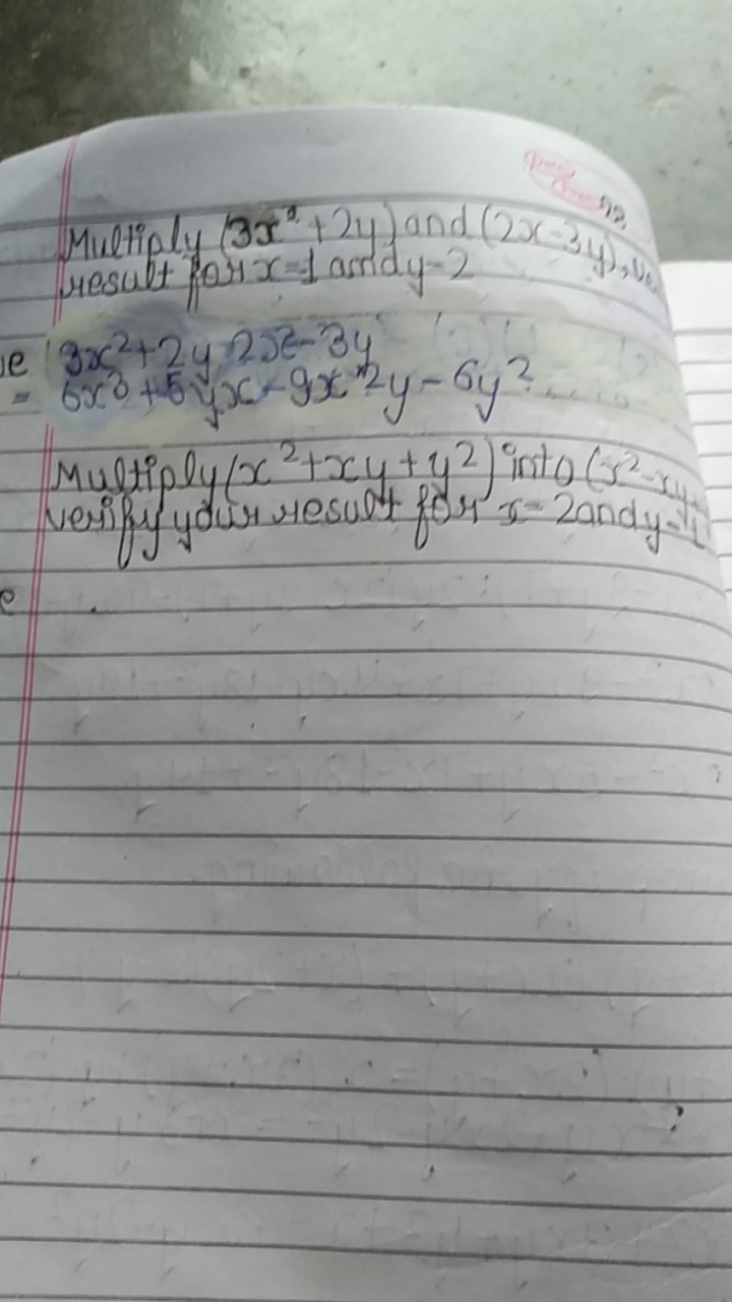 Multiply (3x² + 2y) and (2x-3y),
result for x=1 and y-2
3x²+2y 2x-3y
= 6x3 + 5 yx - 9x 2y - 6y2
Multiply (x²+xy+y²) into (x²-xy
verify your result for x=2 and y=